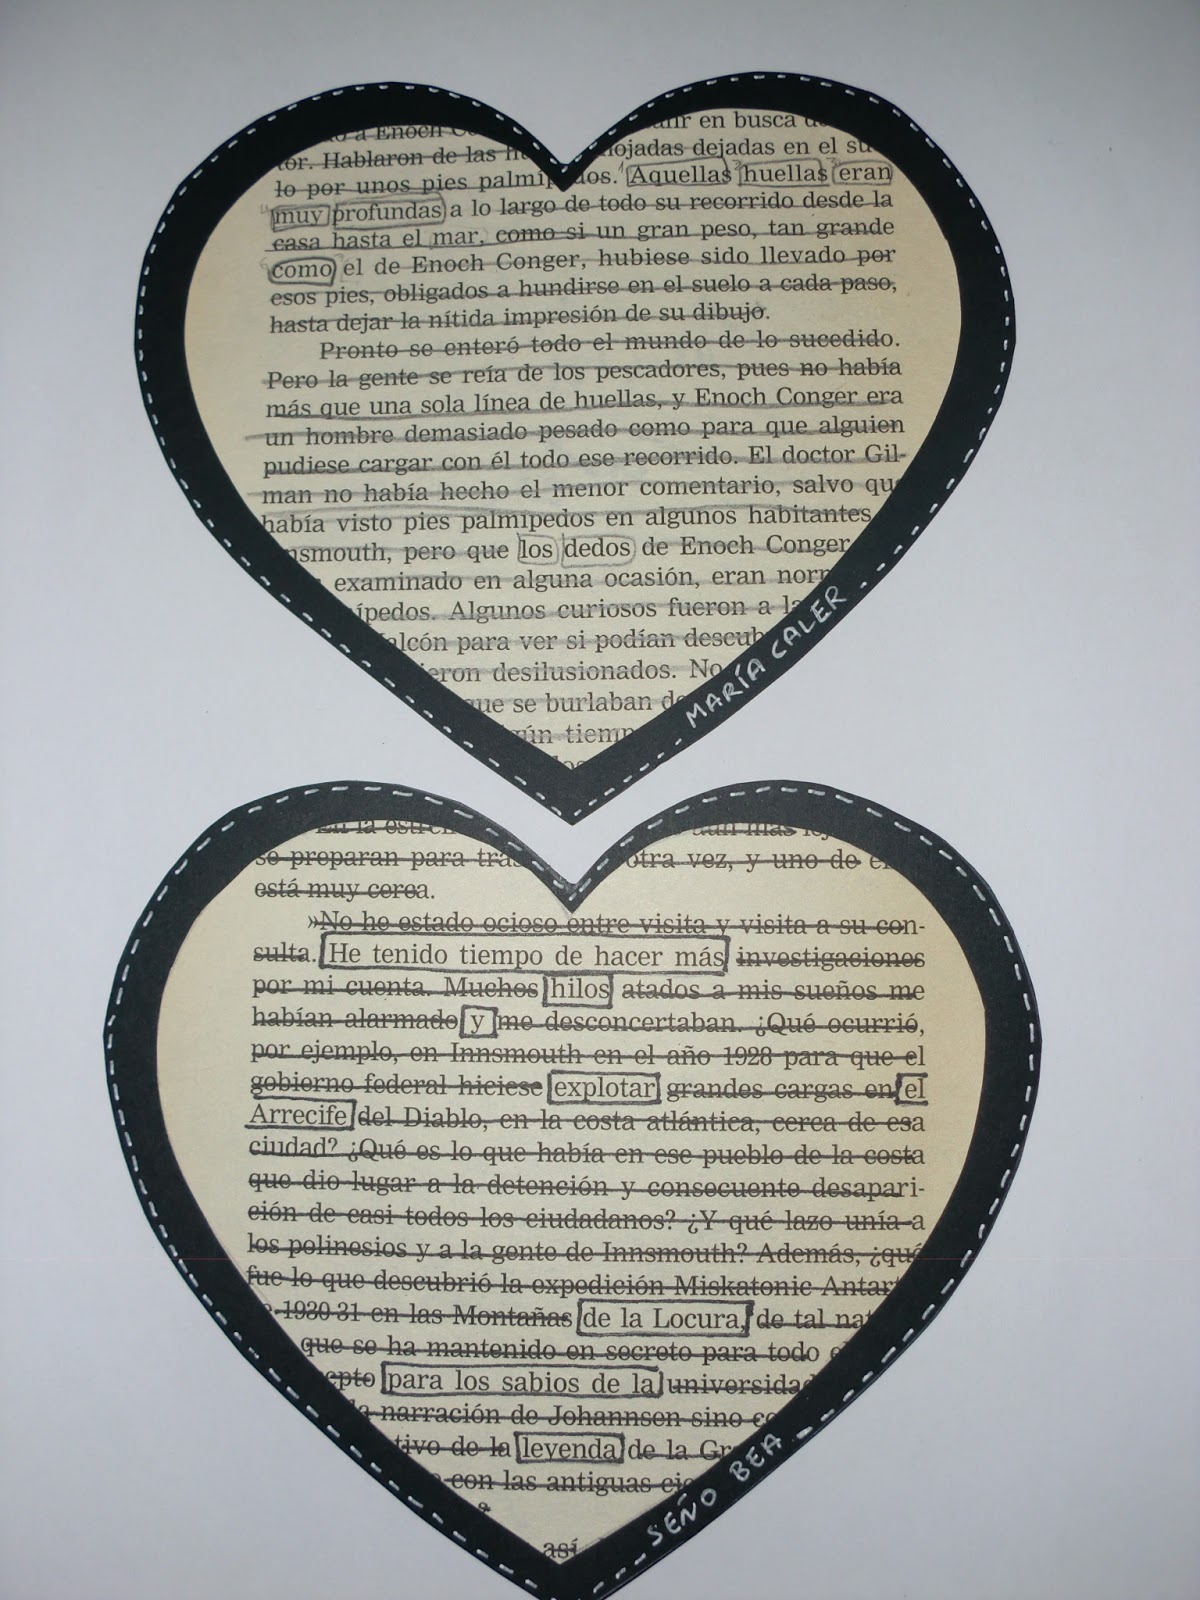 a Enoch
tor. Hablaron de las
lo por unos pies palmíp
en busca
mojadas dejadas en el su
dos. Aquellas huellas eran
muy profundas a lo largo de todo su recorrido desde la
casa hasta el mar, como si un gran peso, tan grande
como el de Enoch Conger, hubiese sido llevado por
esos pies, obligados a hundirse en el suelo a cada paso,
hasta dejar la nítida impresión de su dibujo.
Pronto se enteró todo el mundo de lo sucedido.
Pero la gente se reía de los pescadores, pues no había
más que una sola línea de huellas, y Enoch Conger era
un hombre demasiado pesado como para que alguien
pudiese cargar con él todo ese recorrido. El doctor Gil-
man no había hecho el menor comentario, salvo que
había visto pies palmípedos en algunos habitantes
nsmouth, pero que los dedos de Enoch Conger
examinado en alguna ocasión, eran norm
ípedos. Algunos curiosos fueron a la
alcón para ver si podían descub
eron desilusionados. No
que se burlaban de
gún tiemp
MARÍA CALER
En la estre
se preparan para tras
está muy cerca.
aun más lej
otra vez, y uno de e
»No he estado ocioso entre visita y visita a su con-
sulta. He tenido tiempo de hacer más investigaciones
por mi cuenta. Muchos hilos atados a mis sueños me
habían alarmado y me desconcertaban. ¿Qué ocurrió,
por ejemplo, en Innsmouth en el año 1928 para que el
gobierno federal hiciese explotar grandes cargas en el
Arrecife del Diablo, en la costa atlántica, cerca de esa
ciudad? ¿Qué es lo que había en ese pueblo de la costa
que dio lugar a la detención y consecuente desapari-
ción de casi todos los ciudadanos? ¿Y qué lazo unía a
los polinesios y a la gente de Innsmouth? Además, ¿qué
fue lo que descubrió la expedición Miskatonic Antar
1930-31 en las Montañas de la Locura, de tal nat
que se ha mantenido en secreto para todo e
epto para los sabios de la universida
la narración de Johannsen sino co
tivo de la leyenda de la Gr
con las antiguas
así
SEÑO BEA